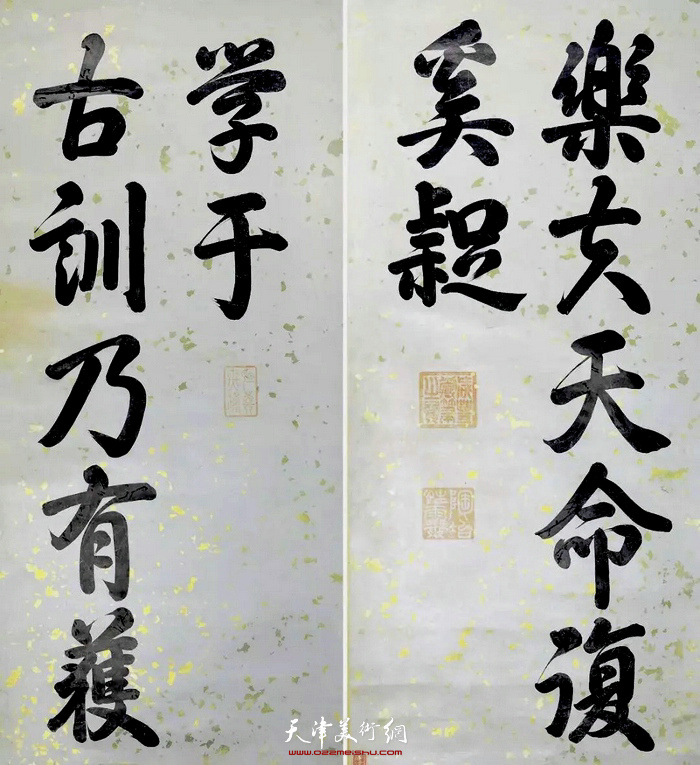 樂夫天命復
奚疑
学于
古訓乃有獲
天津美術網
www.022meishu.com